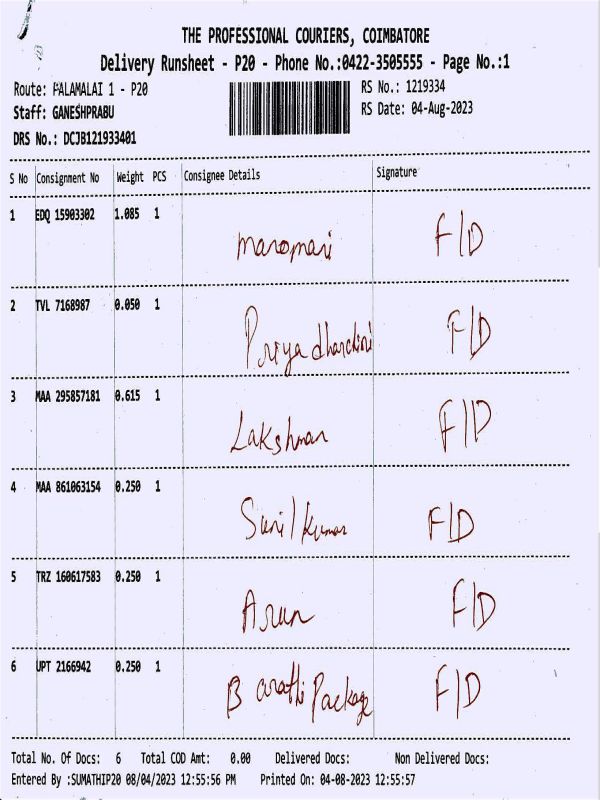 THE PROFESSIONAL COURIERS, COIMBATORE
Delivery Runsheet - P20 - Phone No.:0422-3505555 - Page No.:1
Route: PALAMALAI 1 - P20
RS No.: 1219334
Staff: GANESHPRABU
RS Date: 04-Aug-2023
DRS No.: DCJB121933401
S No Consignment No Weight PCS Consignee Details Signature
1 EDQ 15903302 1.085 1
F/D
2 TVL 7168987 0.050 1
Priyadharshini F/D
3 MAA 295857181 0.615 1
Lakshman F/D
4 MAA 861063154 0.250 1
Sunil Kumar F/D
5 TRZ 160617583 0.250 1
Arun F/D
6 UPT 2166942 0.250 1
Barathi Package F/D
Total No. Of Docs: 6 Total COD Amt: 0.00 Delivered Docs: Non Delivered Docs:
Entered By :SUMATHIP20 08/04/2023 12:55:56 PM Printed On: 04-08-2023 12:55:57